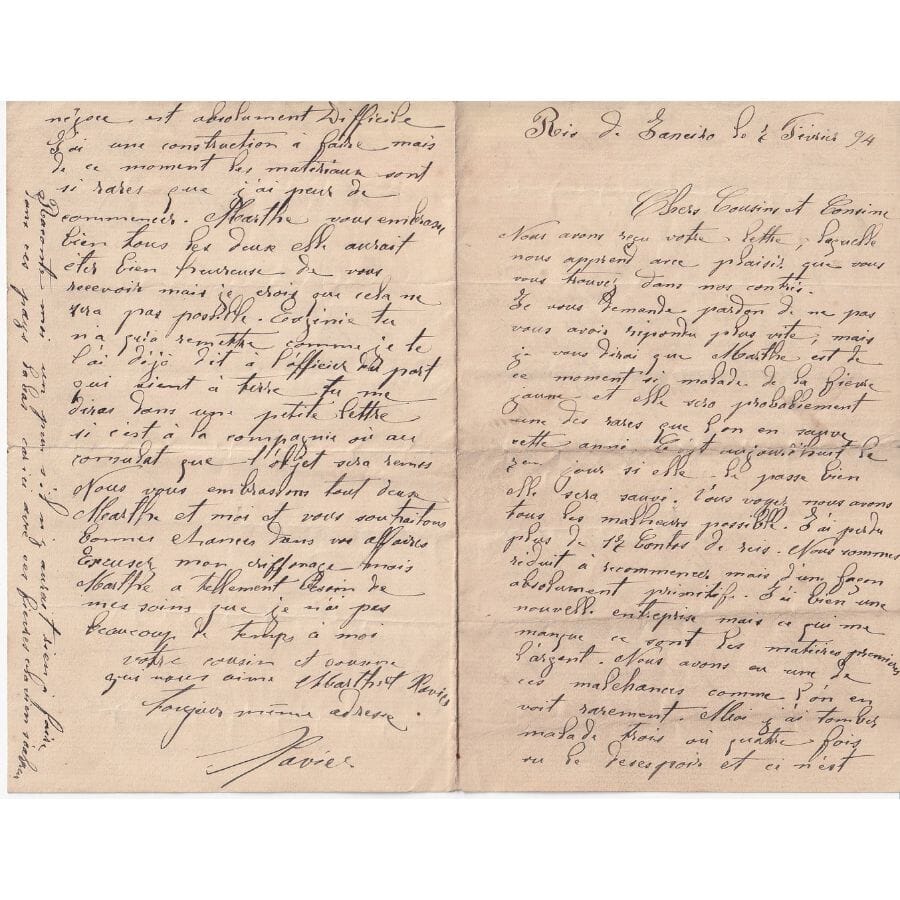 Rio de Janeiro le 2 Février 94
Chers Cousins et Cousine
Nous avons reçu votre lettre, laquelle
nous apprend avec plaisir que vous
vous trouvez dans nos contrés.
Je vous demande pardon de ne pas
vous avoir repondu plus vite, mais
je vous dirai que Marthe est de
ce moment si malade de la fièvre
jaune et elle sera probablement
une des rares que l'on en sauve
cette anné. C'est aujourd'huit le
jour si elle le passe bien
elle sera sauvé. Vous voyez nous avons
tous les malheurs possible. J'ai perdu
plus de 12 Contos de reis. Nous sommes
réduit à recommencer mais d'un façon
absolument primitif. J'ai bien une
nouvelle entreprise mais ce qui me
manque ce sont les matières premières
l'argent. Nous avons eu une de
ces malchances comme l'on en
voit rarement. Moi j'ai tomber
malade trois où quatre fois
vu le desespoir et ci n'est
négoce est absolument Difficile
J'ai une construction à faire mais
de ce moment les matériaux sont
si rares que j'ai peur de
commencer. Marthe vous embrasse
bien tous les deux elle aurait
étér bien heureuse de vous
recevoir mais je crois que cela ne
sera pas possible. Eugénie tu
n'a qu'à remettre comme je te
l'ai déjà dit à l'officier du port
qui vient à terre tu me
diras dans une petite lettre
si c'est à la compagnie où au
consulat que l'objet sera remis
Nous vous embrassons tout deux
Marthe et moi et vous souhaitons
bonnes chances dans vos affaires
Excuser mon griffonage mais
Marthe a tellement besoin de
mes soins que je n'ai pas
beaucoup de temps à moi
votre cousin et cousine
qui vous aime Marthe et Xavier
Toujour même adresse.
Xavier
Raconte moi un peu s'il n'y aurait rien à faire
dans ces pays là bas car ici avec ces fièvres